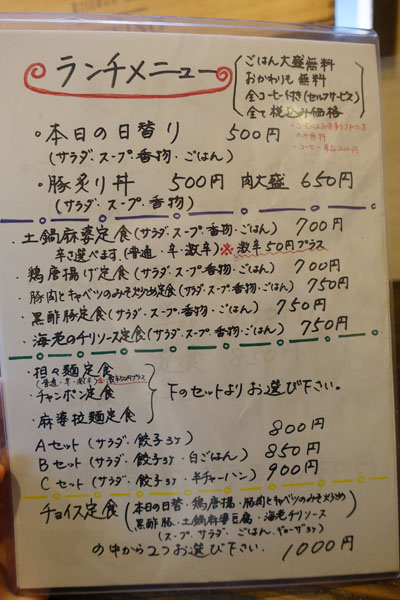 ランチメニュー
ごはん大盛無料
おかわりも無料
全コーヒー付き(セルフサービス)
全て税込み価格
・コーヒーはお食事をされた方
のみ無料
・コーヒー単品200円
・本日の日替り 500円
(サラダ・スープ・香物・ごはん)
・豚炙り丼 500円 肉大盛 650円
(サラダ・スープ・香物)
・土鍋麻婆定食(サラダ・スープ・香物・ごはん) 700円
辛さ選べます。(普通・辛・激辛) ※激辛50円プラス
・鶏唐揚げ定食(サラダ・スープ・香物・ごはん) 700円
・豚肉とキャベツのみそ炒め定食(サラダ・スープ・香物・ごはん) 750円
・黒酢豚定食(サラダ・スープ・香物・ごはん) 750円
・海老のチリソース定食(サラダ・スープ・香物・ごはん) 750円
・担々麺定食
(普通・辛・激辛)※激辛50円プラス
・チャンポン定食
・麻婆拉麺定食
下のセットよりお選び下さい。
Aセット(サラダ・餃子3ヶ) 800円
Bセット(サラダ・餃子3ヶ・白ごはん) 850円
Cセット(サラダ・餃子3ヶ・半チャーハン) 900円
チョイス定食(本日の日替・鶏唐揚・豚肉とキャベツのみそ炒め
黒酢豚・土鍋麻婆豆腐・海老チリソース
(スープ・サラダ・ごはん・ギョーザ3ヶ)
の中から2つお選び下さい。 1000円